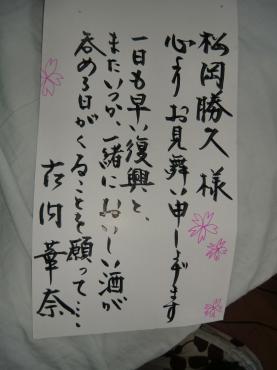 松岡勝久様
心よりお見舞い申し上げます
一日も早い復興と、
またいつか、一緒においしい酒が
呑める日がくることを願って…
古内華奈